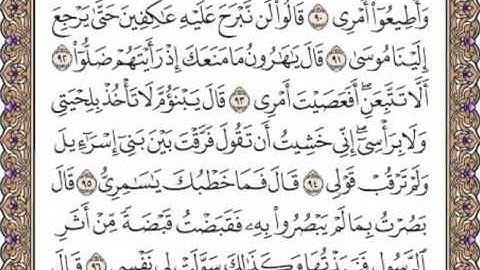 وَأَطِيعُوٓا۟ أَمْرِى ٩٠ قَالُوا۟ لَن نَّبْرَحَ عَلَيْهِ عَـٰكِفِينَ حَتَّىٰ يَرْجِعَ
إِلَيْنَا مُوسَىٰ ٩١ قَالَ يَـٰهَـٰرُونُ مَا مَنَعَكَ إِذْ رَأَيْتَهُمْ ضَلُّوٓا۟ ٩٢
أَلَّا تَتَّبِعَنِ ۖ أَفَعَصَيْتَ أَمْرِى ٩٣ قَالَ يَبْنَؤُمَّ لَا تَأْخُذْ بِلِحْيَتِى
وَلَا بِرَأْسِىٓ ۖ إِنِّى خَشِيتُ أَن تَقُولَ فَرَّقْتَ بَيْنَ بَنِىٓ إِسْرَٰٓءِيلَ
وَلَمْ تَرْقُبْ قَوْلِى ٩٤ قَالَ فَمَا خَطْبُكَ يَـٰسَـٰمِرِىُّ ٩٥ قَالَ
بَصُرْتُ بِمَا لَمْ يَبْصُرُوا۟ بِهِۦ فَقَبَضْتُ قَبْضَةً مِّنْ أَثَرِ
ٱلرَّسُولِ فَنَبَذْتُهَا وَكَذَٰلِكَ سَوَّلَتْ لِى نَفْسِى ٩٦ قَالَ